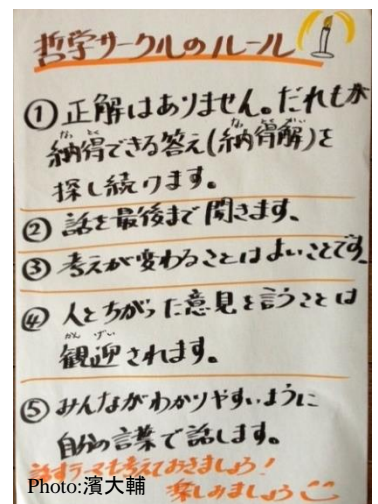 哲学サークルのルール
①正解はありません。だれもが
納得できる答え(納得解)を
探し続けます。
②話を最後まで聞きます、
③考えが変わることはよいことです。
④人とちがった意見を言うことは
観迎されます。
⑤みんながわかりやすいように
自分の言葉で話します。
話すテーマも考えておきましょう!
楽しみましょう
Photo:濱大輔